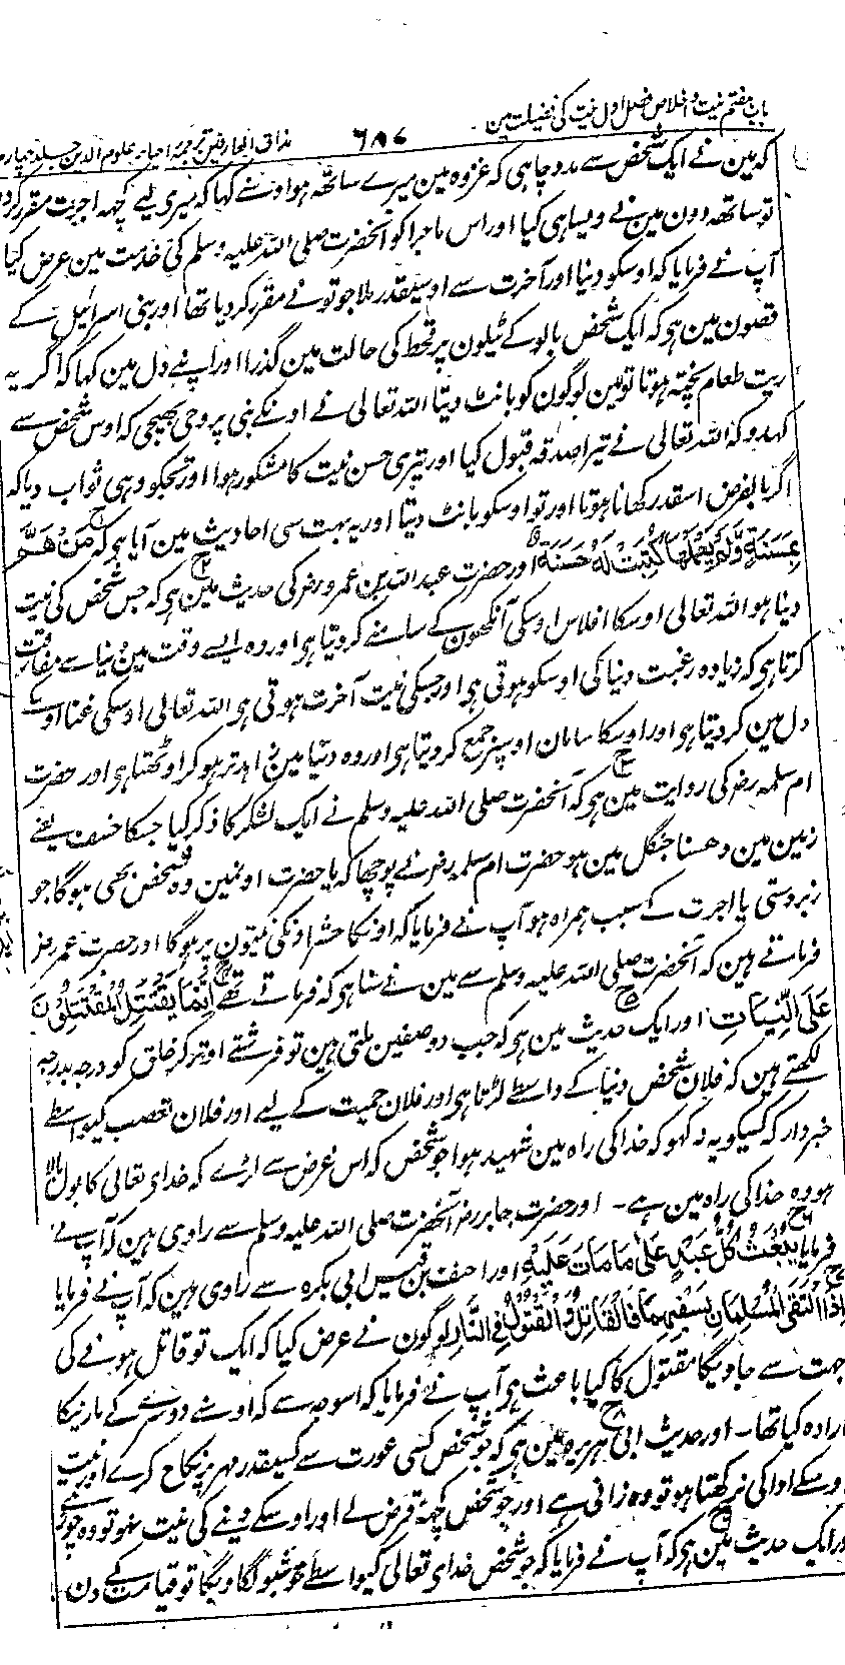 باب ہفتم نیت و اخلاص فصل اول نیت کی فضیلت مین ۶۸۷ مذاق العارفین ترجمہ احیاء علوم الدین جلد چہارم
کہ مین نے ایک شخص سے مدد چاہی کہ غزوہ مین میرے ساتھ ہو اوسنے کہا کہ میری لیے کچھ اجرت مقرر کردو
تو ساتھ دون مین نے ویسا ہی کیا اور اس ماجرا کو آنحضرت صلی اللہ علیہ وسلم کی خدمت مین عرض کیا
آپ نے فرمایا کہ اوسکو دنیا اور آخرت سے اوسیقدر ملا جو تو نے مقرر کر دیا تھا اور بنی اسرائیل کے
قصون مین ہی کہ ایک شخص بالو کے ٹیلون پر قحط کی حالت مین گذرا اور اپنے دل مین کہا کہ اگر یہ
ریت طعام پختہ ہوتا تو مین لوگون کو بانٹ دیتا اللہ تعالی نے اونکے نبی پر وحی بھیجی کہ اوس شخص سے
کہدو کہ اللہ تعالی نے تیرا صدقہ قبول کیا اور تیری حسن نیت کا مشکور ہوا اور تجکو وہی ثواب دیا کہ
اگر بالفرض اسقدر کھانا ہوتا اور تو اوسکو بانٹ دیتا اور یہ بہت سی احادیث مین آیا ہی کہ مَنْ هَمَّ
بِحَسَنَةٍ وَّلَمْ يَعْمَلْهَا كُتِبَتْ لَهٗ حَسَنَةٌ اور حضرت عبد اللہ بن عمرو رضہ کی حدیث مین ہی کہ جس شخص کی نیت
دنیا ہو اللہ تعالی اوسکا افلاس اوسکی آنکھون کے سامنے کر دیتا ہی اور وہ ایسے وقت مین دنیا سے مفارقت
کرتا ہی کہ زیادہ رغبت دنیا کی اوسکو ہوتی ہی اور جسکی نیت آخرت ہوتی ہی اللہ تعالی اوسکی غنا اوسکے
دل مین کر دیتا ہی اور اوسکا سامان اوسپر جمع کر دیتا ہی اور وہ دنیا مین زاہدتر ہو کر اوٹھتا ہی اور حضرت
ام سلمہ رضہ کی روایت مین ہی کہ آنحضرت صلی اللہ علیہ وسلم نے ایک لشکر کا ذکر کیا جسکا خسف یعنے
زمین مین دھسنا جنگل مین ہو حضرت ام سلمہ رضہ نے پوچھا کہ یا حضرت اونمین وہ شخص بھی ہوگا جو
زبردستی یا اجرت کے سبب ہمراہ ہو آپ نے فرمایا کہ اونکا حشر اونکی نیتون پر ہوگا اور حضرت عمر رضہ
فرماتے ہین کہ آنحضرت صلی اللہ علیہ وسلم سے مین نے سنا ہی کہ فرماتے تھے اِنَّمَا يَقْتَتِلُ الْمُقْتَتِلُوْنَ
عَلَى النِّيَّاتِ اور ایک حدیث مین ہی کہ جب دو صفین ملتی ہین تو فرشتے اوتر کر خلق کو درجہ بدرجہ
لکھتے ہین کہ فلان شخص دنیا کے واسطے لڑتا ہی اور فلان حمیت کے لیے اور فلان تعصب کیواسطے
خبردار کہ کسیکو یہ نہ کہو کہ خدا کی راہ مین شہید ہوا جو شخص کہ اس غرض سے لڑے کہ خدای تعالی کا بول بالا
ہو وہ خدا کی راہ مین ہے۔ اور حضرت جابر رضہ آنحضرت صلی اللہ علیہ وسلم سے راوی ہین کہ آپ نے
فرمایا يُبْعَثُ كُلُّ عَبْدٍ عَلٰى مَا مَاتَ عَلَيْهِ اور احنف بن قیس ابی بکرہ سے راوی ہین کہ آپ نے فرمایا
اِذَا الْتَقَى الْمُسْلِمَانِ بِسَيْفَيْهِمَا فَالْقَاتِلُ وَالْمَقْتُوْلُ فِى النَّارِ لوگون نے عرض کیا کہ ایک تو قاتل ہونے کی
جہت سے جاویگا مقتول کا کیا باعث ہی آپ نے فرمایا کہ اسوجہ سے کہ اوسنے دوسرے کے مارنیکا
ارادہ کیا تھا۔ اور حدیث ابی ہریرہ مین ہی کہ جو شخص کسی عورت سے کسیقدر مہر پر نکاح کرے اور نیت
اوسکے ادا کی نہ رکھتا ہو تو وہ زانی ہے اور جو شخص کچھ قرض لے اور اوسکے دینے کی نیت نہو تو وہ چور ہے
اور ایک حدیث مین ہی کہ آپ نے فرمایا کہ جو شخص خدای تعالی کیواسطے خوشبو لگاویگا تو قیامت کے دن